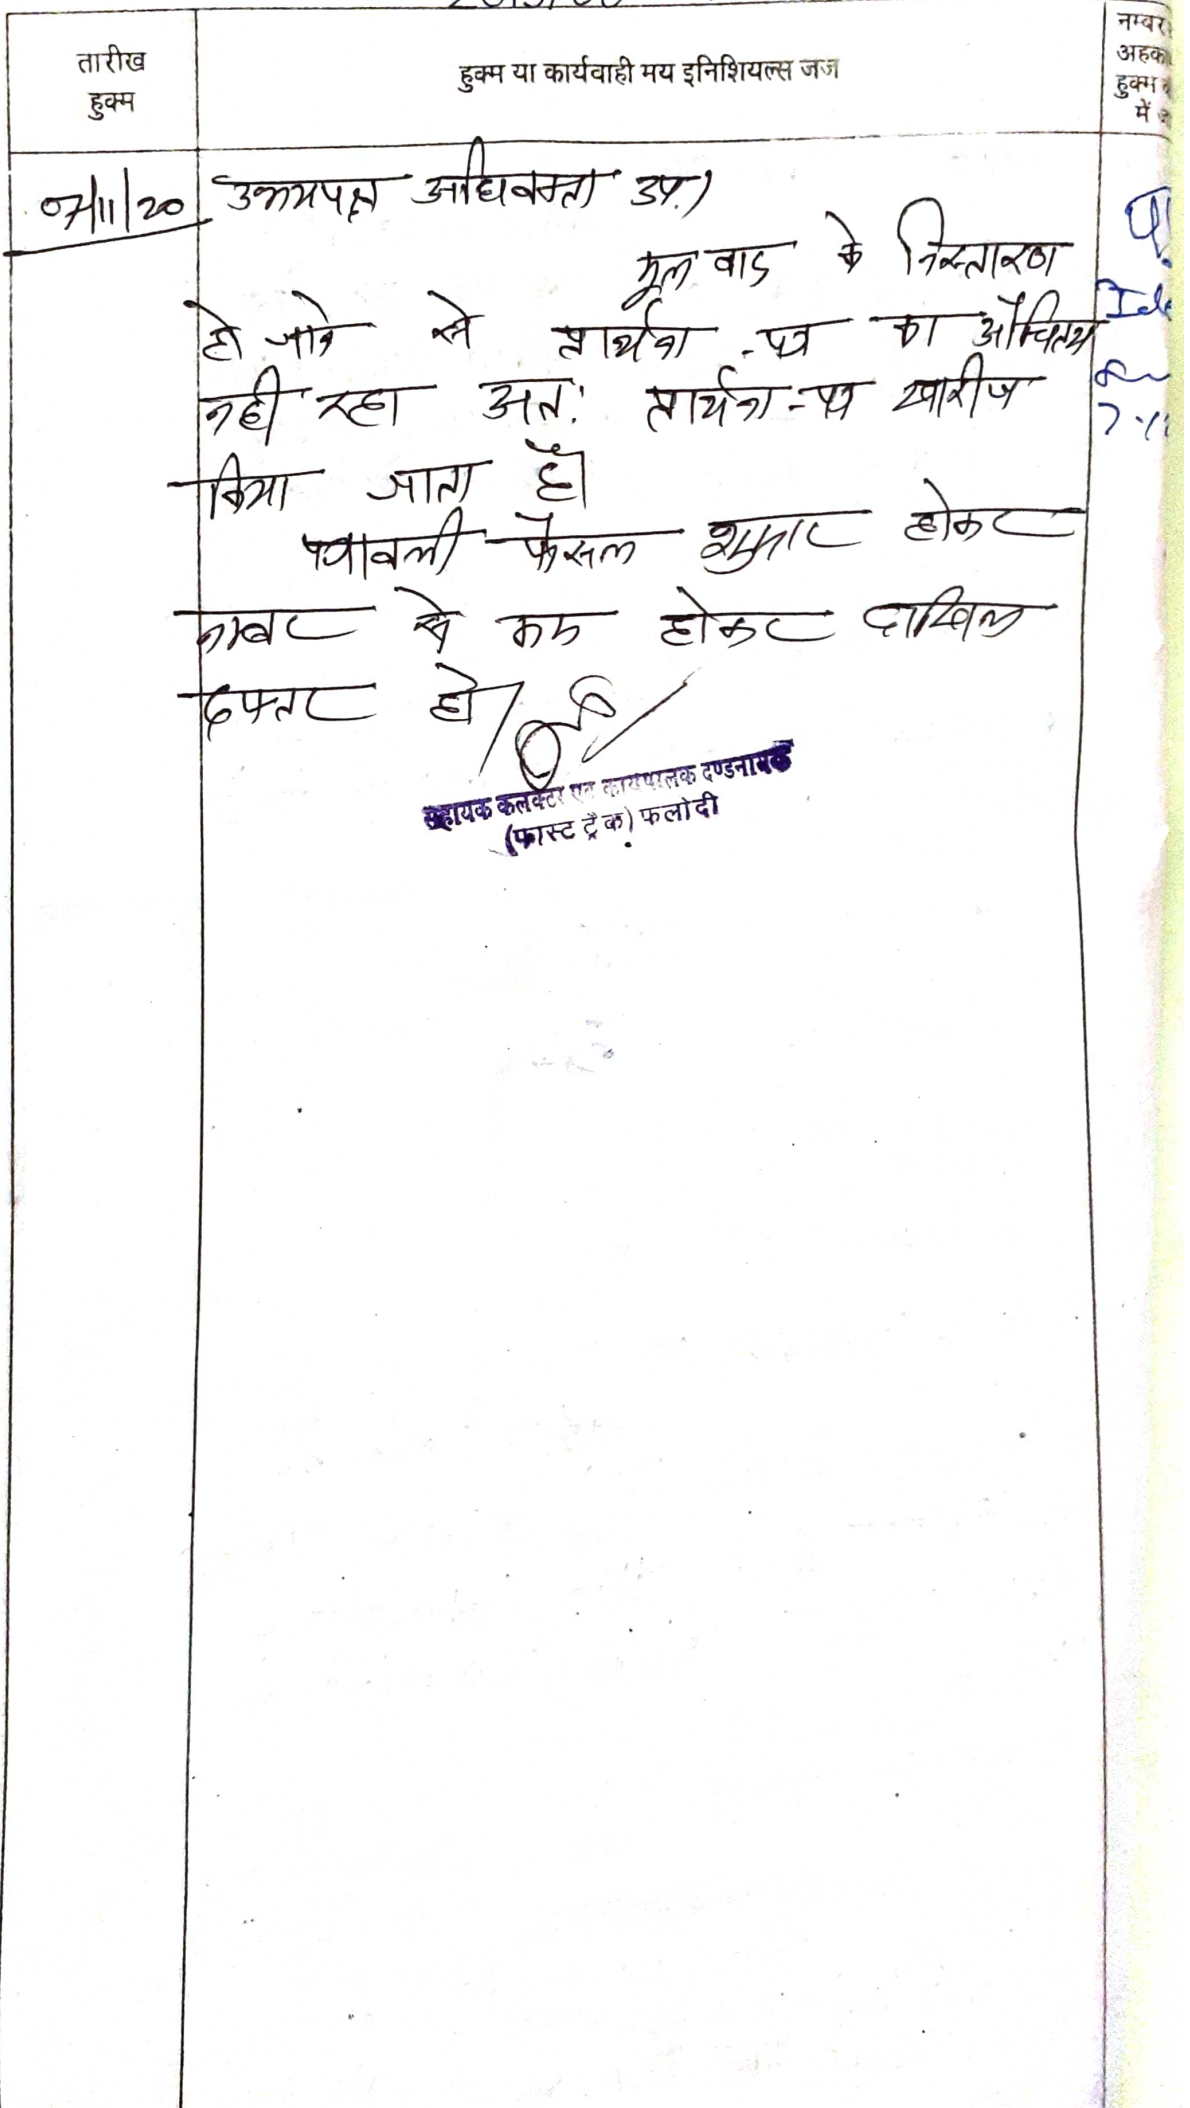 तारीख
हुक्म
हुक्म या कार्यवाही मय इनिशियल्स जज
नम्बर
अहक
हुक्म
में
07/11/20
उभयपक्ष अधिवक्ता उप.।
मूल वाद के निस्तारण
हो जाने से प्रार्थना-पत्र का औचित्य
नही रहा अत: प्रार्थना-पत्र खारीज
किया जाता है।
पत्रावली फैसल शुमार होकर
नम्बर से कम होकर दाखिल
दफ्तर हो।
सहायक कलक्टर एवं कार्यपालक दण्डनायक
(फास्ट ट्रैक) फलोदी